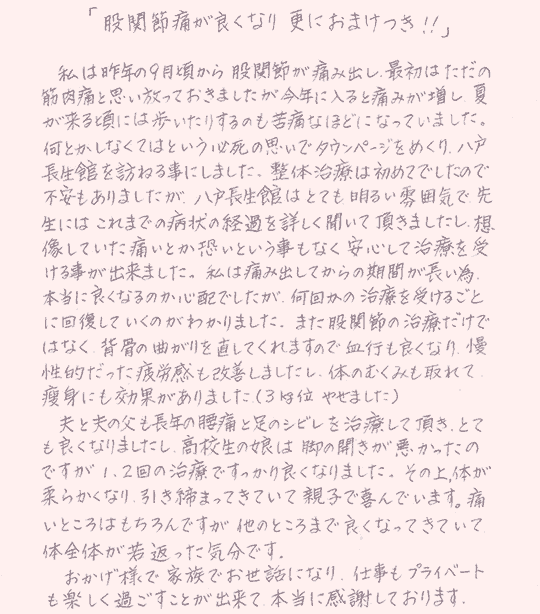 「股関節痛が良くなり 更におまけつき!!」
私は昨年の9月頃から 股関節が痛み出し、最初はただの
筋肉痛と思い放っておきましたが今年に入ると痛みが増し、夏
が来る頃には歩いたりするのも苦痛なほどになっていました。
何とかしなくてはという必死の思いでタウンページをめくり、八戸
長生館を訪ねる事にしました。整体治療は初めてでしたので
不安もありましたが、八戸長生館はとても明るい雰囲気で、先
生には これまでの病状の経過を詳しく聞いて頂きましたし、想
像していた痛いとか恐いという事もなく 安心して治療を受
ける事が出来ました。私は痛み出してからの期間が長い為、
本当に良くなるのか心配でしたが、何回かの治療を受けるごと
に回復していくのがわかりました。また股関節の治療だけで
はなく、背骨の曲がりを直してくれますので血行も良くなり、慢
性的だった疲労感も改善しましたし、体のむくみも取れて
痩身にも効果がありました(3kg位 やせました)
夫と夫の父も長年の腰痛と足のシビレを治療して頂き、とて
も良くなりましたし、高校生の娘は 脚の開きが悪かったの
ですが 1、2回の治療ですっかり良くなりました。その上、体が
柔らかくなり、引き締まってきていて 親子で喜んでいます。痛
いところはもちろんですが 他のところまで良くなってきていて
体全体が若返った気分です。
おかげ様で 家族でお世話になり、仕事も プライベート
も楽しく過ごすことが出来て、本当に感謝しております。